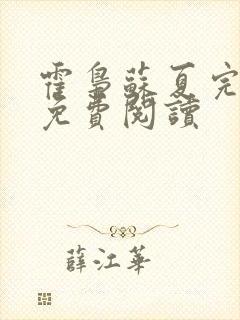 霍梟蘇夏完
免費閱讀
薛江華